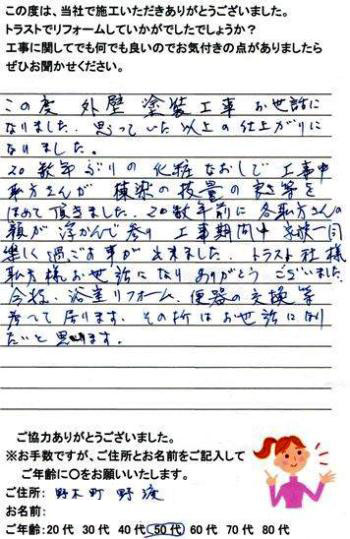 この度は、当社で施工いただきありがとうございました。
トラストでリフォームしていかがでしたでしょうか？
工事に関してでも何でも良いのでお気付きの点がありましたら
ぜひお聞かせください。
この度 外壁 塗装工事 お世話に
なりました。思っていた以上の仕上がりに
なりました。
20数年ぶりの化粧なおしで 工事中
職方さんが 棟梁の技量の良さ等を
ほめて頂きました。20数年前に各職方さんの
顔が浮かんで参り 工事期間中 家族一同
楽しく過ごす事が出来ました。トラスト社様
職方様お世話になり ありがとうございました。
今後、浴室リフォーム、便器の交換等
考えて居ります。その折はお世話になり
たいと思います。
ご協力ありがとうございました。
※お手数ですが、ご住所とお名前をご記入して
ご年齢に〇をお願いいたします。
ご住所: 野木町 野渡
お名前:
ご年齢:20代 30代 40代 50代 60代 70代 80代